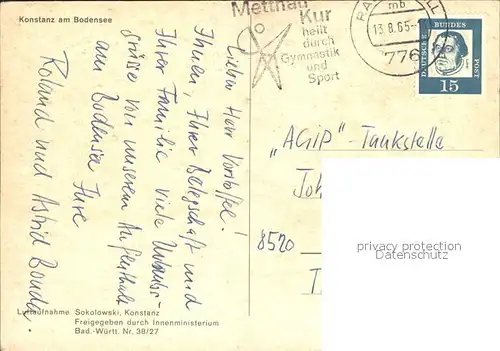 Konstanz am Bodensee
Lieber Herr
Ihnen, Ihrer Belegschaft und
Ihrer Familie viele Urlaubs-
grüße von unserem Aufenthalt
am Bodensee Ihre
Roland und Astrid
Luftaufnahme Sokolowski, Konstanz
Freigegeben durch Innenministerium
Bad.-Württ. Nr. 38/27
Mettnau
Kur
heilt
durch
Gymnastik
und
Sport
mb
13.8.65-
776
DEUTSCHE BUNDES POST
15
„AGIP"-Tankstelle
8520
privacy protection
Datenschutz